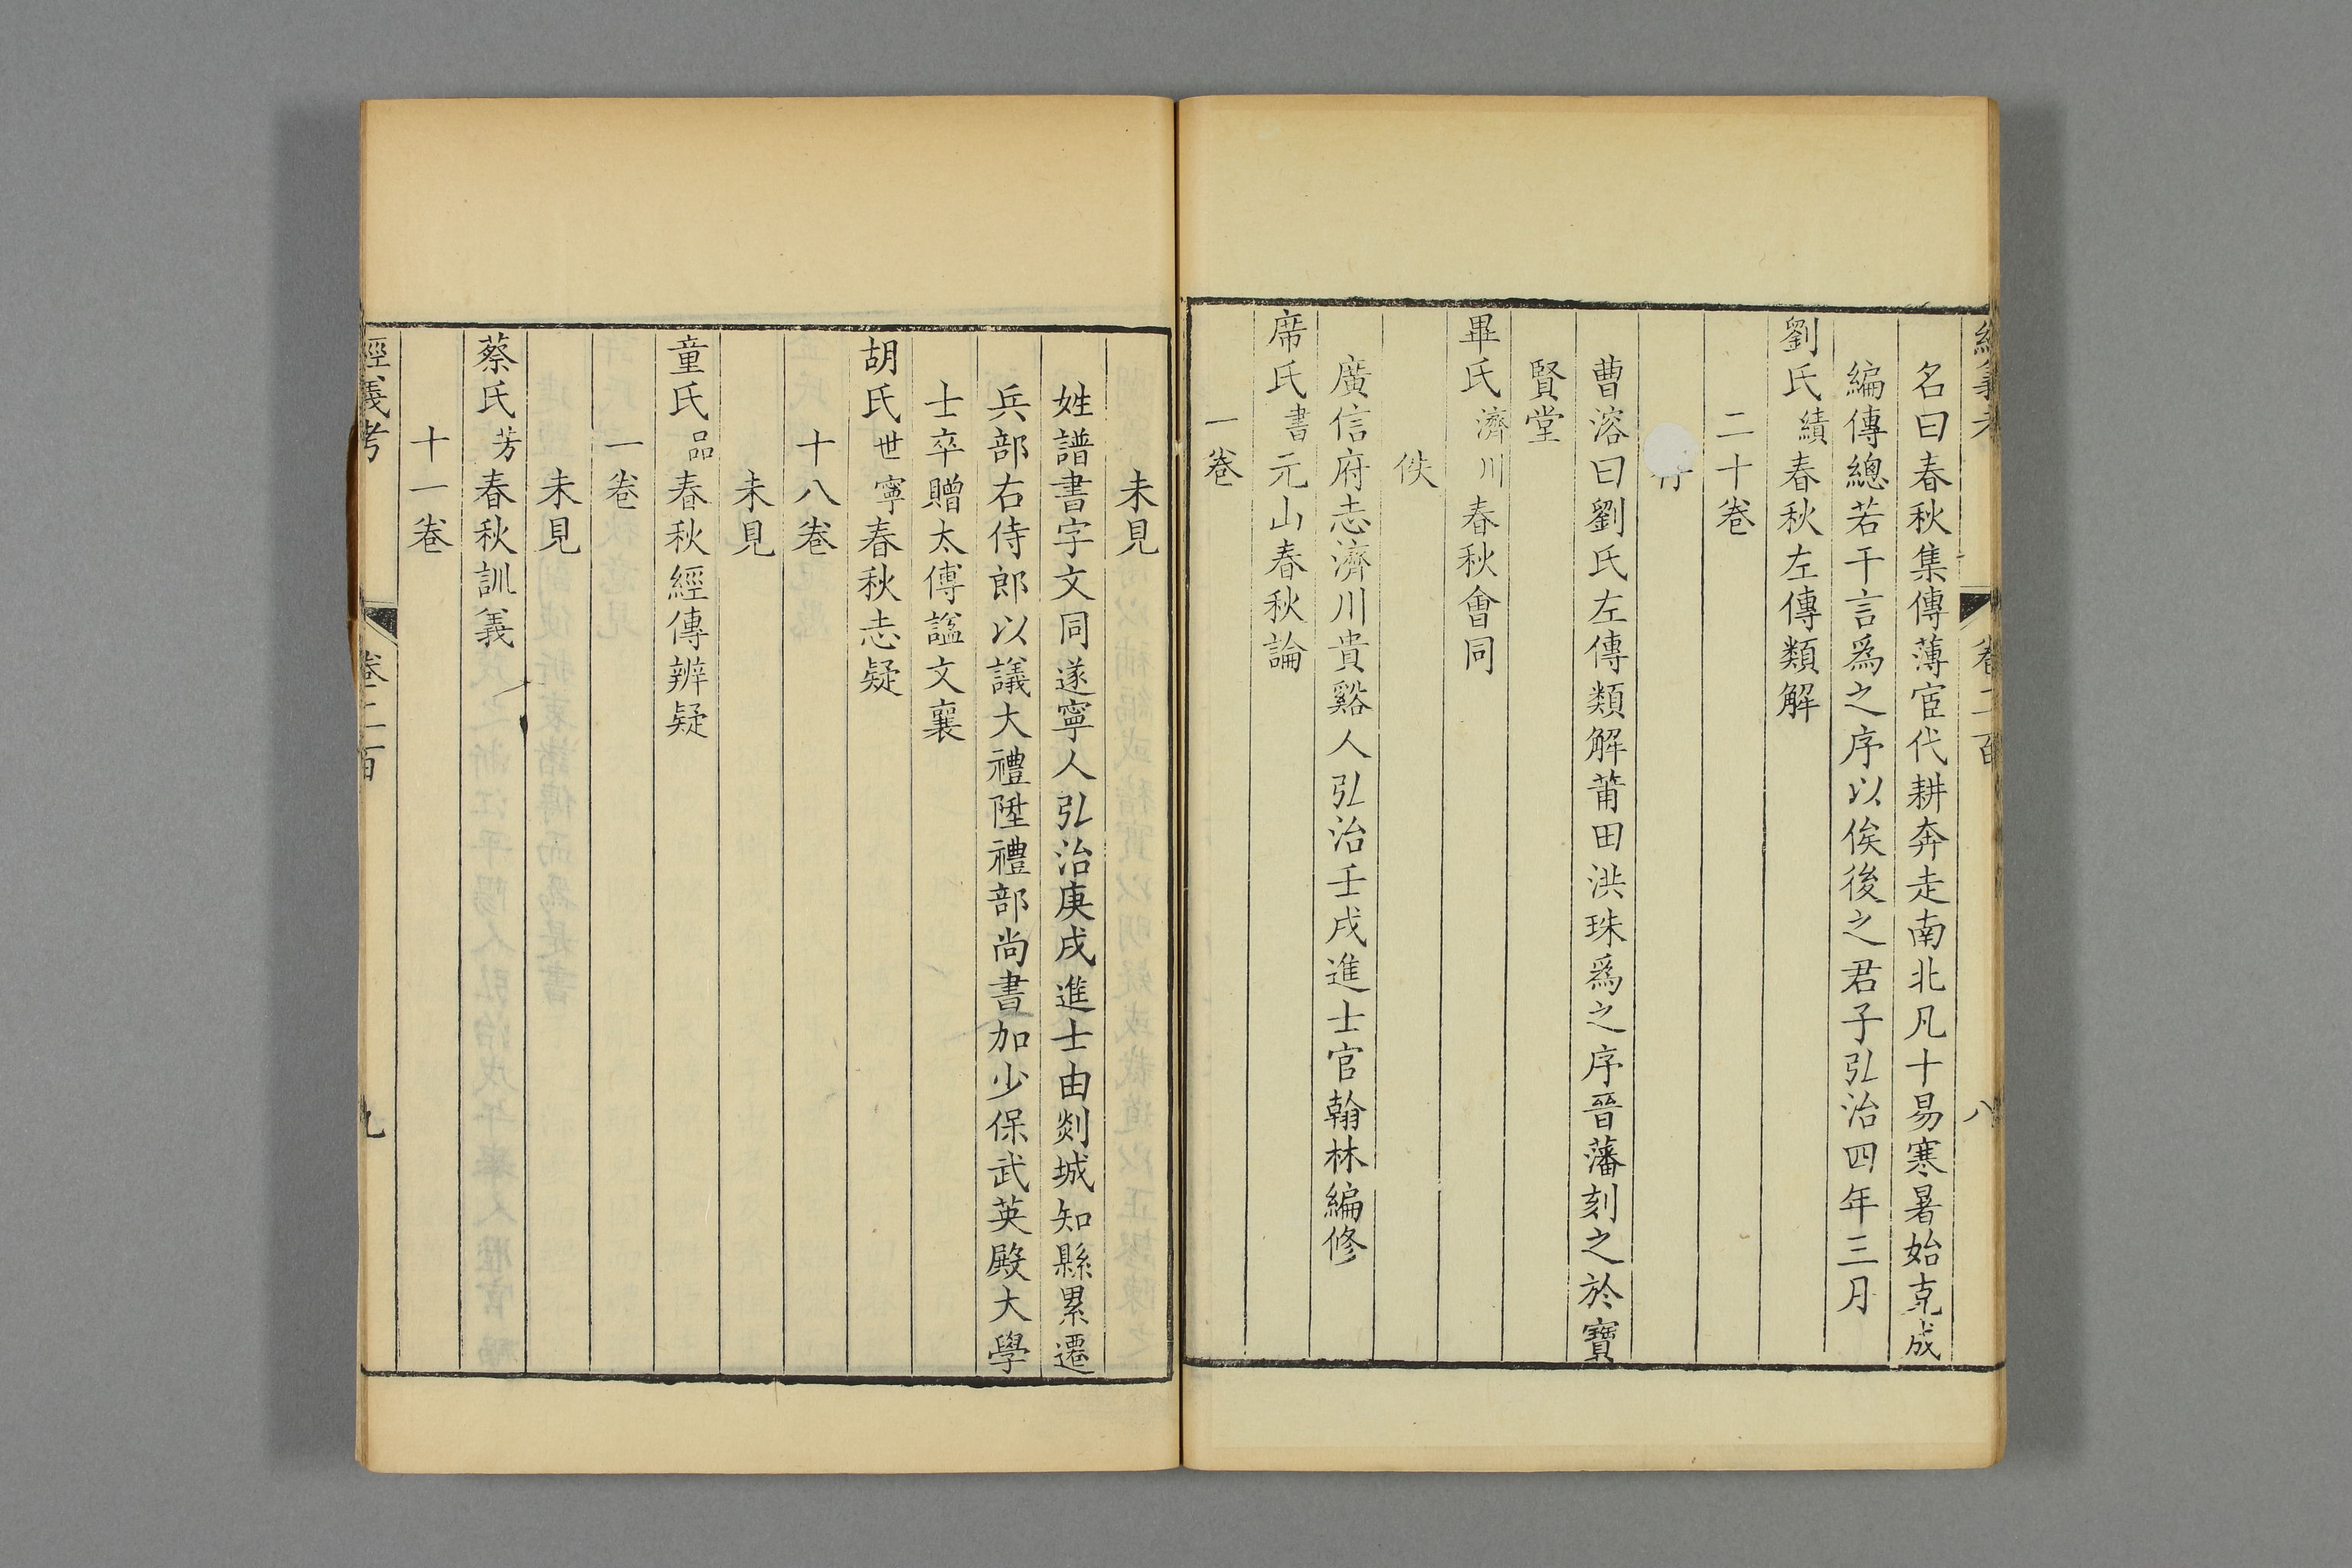 經義考 卷二百 八
名曰春秋集傳薄宦代耕奔走南北凡十易寒暑始克成
編傳總若干言爲之序以俟後之君子弘治四年三月
劉氏績春秋左傳類解
二十卷
曹溶曰劉氏左傳類解莆田洪珠爲之序晉藩刻之於寶
賢堂
畢氏濟川春秋會同
佚
廣信府志濟川貴谿人弘治壬戌進士官翰林編修
席氏書元山春秋論
一卷
未見
姓譜書字文同遂寧人弘治庚戌進士由剡城知縣累遷
兵部右侍郎以議大禮陞禮部尚書加少保武英殿大學
士卒贈太傅諡文襄
胡氏世寧春秋志疑
十八卷
未見
童氏品春秋經傳辨疑
一卷
未見
蔡氏芳春秋訓義
十一卷
經義考 卷二百 九